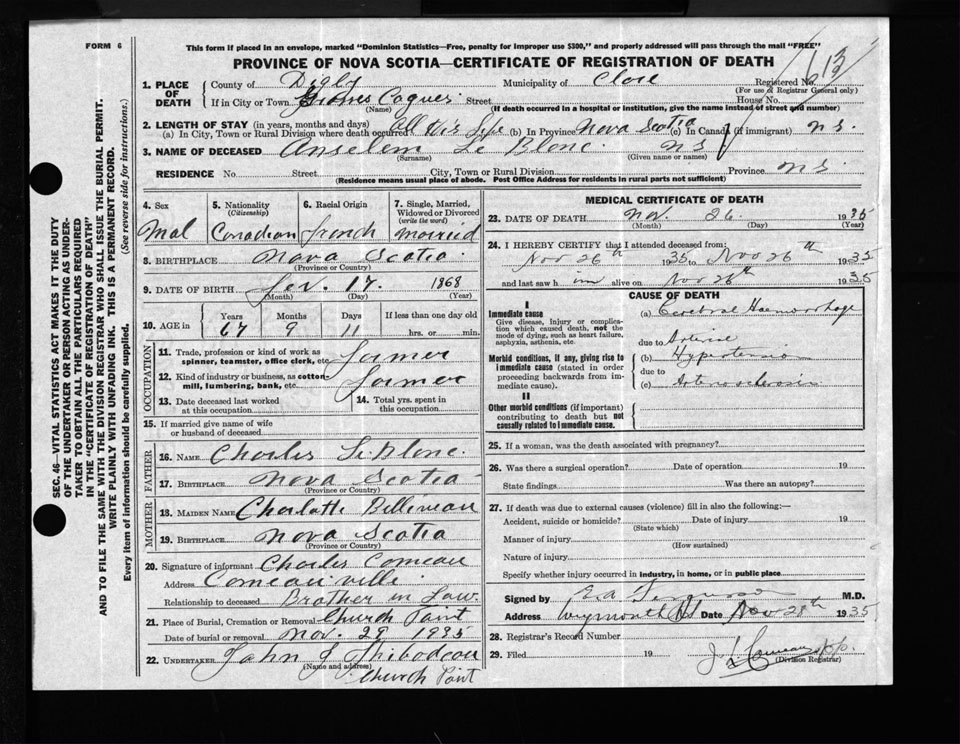 FORM 6
This form if placed in an envelope, marked "Dominion Statistics—Free, penalty for improper use $300," and properly addressed will pass through the mail "FREE"
PROVINCE OF NOVA SCOTIA—CERTIFICATE OF REGISTRATION OF DEATH
1. PLACE OF DEATH
County of Digby Municipality of Clare Registered No.
(For use of Registrar General only)
If in City or Town Grosses Coques Street House No.
(Name) (If death occurred in a hospital or institution, give the name instead of street and number)
2. LENGTH OF STAY (in years, months and days)
(a) In City, Town or Rural Division where death occurred All His Life (b) In Province Nova Scotia (c) In Canada (if immigrant) N.S.
3. NAME OF DECEASED Anselem Le Blanc. N S
(Surname) (Given name or names)
RESIDENCE No. Street City, Town or Rural Division Province N.S.
(Residence means usual place of abode. Post Office Address for residents in rural parts not sufficient)
SEC. 46—VITAL STATISTICS ACT MAKES IT THE DUTY
OF THE UNDERTAKER OR PERSON ACTING AS UNDER-
TAKER TO OBTAIN ALL THE PARTICULARS REQUIRED
IN THE "CERTIFICATE OF REGISTRATION OF DEATH"
AND TO FILE THE SAME WITH THE DIVISION REGISTRAR WHO SHALL ISSUE THE BURIAL PERMIT.
WRITE PLAINLY WITH UNFADING INK. THIS IS A PERMANENT RECORD.
Every item of information should be carefully supplied. (See reverse side for instructions.)
4. Sex
Mal
5. Nationality
(Citizenship)
Canadian
6. Racial Origin
french
7. Single, Married,
Widowed or Divorced
(write the word)
married
8. BIRTHPLACE Nova Scotia
(Province or Country)
9. DATE OF BIRTH 17. 1868
(Month) (Day) (Year)
10. AGE in
Years Months Days If less than one day old
67 9 11 hrs. or min.
OCCUPATION
11. Trade, profession or kind of work as
spinner, teamster, office clerk, etc. farmer
12. Kind of industry or business, as cotton-
mill, lumbering, bank, etc. farmer
13. Date deceased last worked
at this occupation
14. Total yrs. spent in
this occupation
15. If married give name of wife
or husband of deceased
FATHER
16. NAME Charles LeBlanc.
17. BIRTHPLACE Nova Scotia
(Province or Country)
MOTHER
18. MAIDEN NAME Charlotte Belliveau
19. BIRTHPLACE Nova Scotia
(Province or Country)
20. Signature of informant Charles Comeau
Address Comeauville
Relationship to deceased Brother in Law.
21. Place of Burial, Cremation or Removal Church Point
Date of burial or removal Nov. 29 1935
22. UNDERTAKER John J Thibodeau
(Name and address)
Church Point
MEDICAL CERTIFICATE OF DEATH
23. DATE OF DEATH Nov. 26. 1935
(Month) (Day) (Year)
24. I HEREBY CERTIFY that I attended deceased from:
Nov 26th 1935 to Nov 26th 1935
and last saw h im alive on Nov 26th 1935
CAUSE OF DEATH
I
Immediate cause
Give disease, injury or compli-
cation which caused death, not the
mode of dying, such as heart failure,
asphyxia, asthenia, etc.
(a) Cerebral Haemorrhage
due to Arterial
Morbid conditions, if any, giving rise to
immediate cause (stated in order
proceeding backwards from im-
mediate cause).
(b) Hypertension
due to
(c) Arteriosclerosis
II
Other morbid conditions (if important)
contributing to death but not
causally related to immediate cause.
25. If a woman, was the death associated with pregnancy?
26. Was there a surgical operation? Date of operation 19
State findings Was there an autopsy?
27. If death was due to external causes (violence) fill in also the following:—
Accident, suicide or homicide? Date of injury 19
(State which)
Manner of injury
(How sustained)
Nature of injury
Specify whether injury occurred in industry, in home, or in public place
Signed by M.D.
Address Weymouth N.S. Date Nov 28th 1935
28. Registrar's Record Number
29. Filed 19
(Division Registrar)